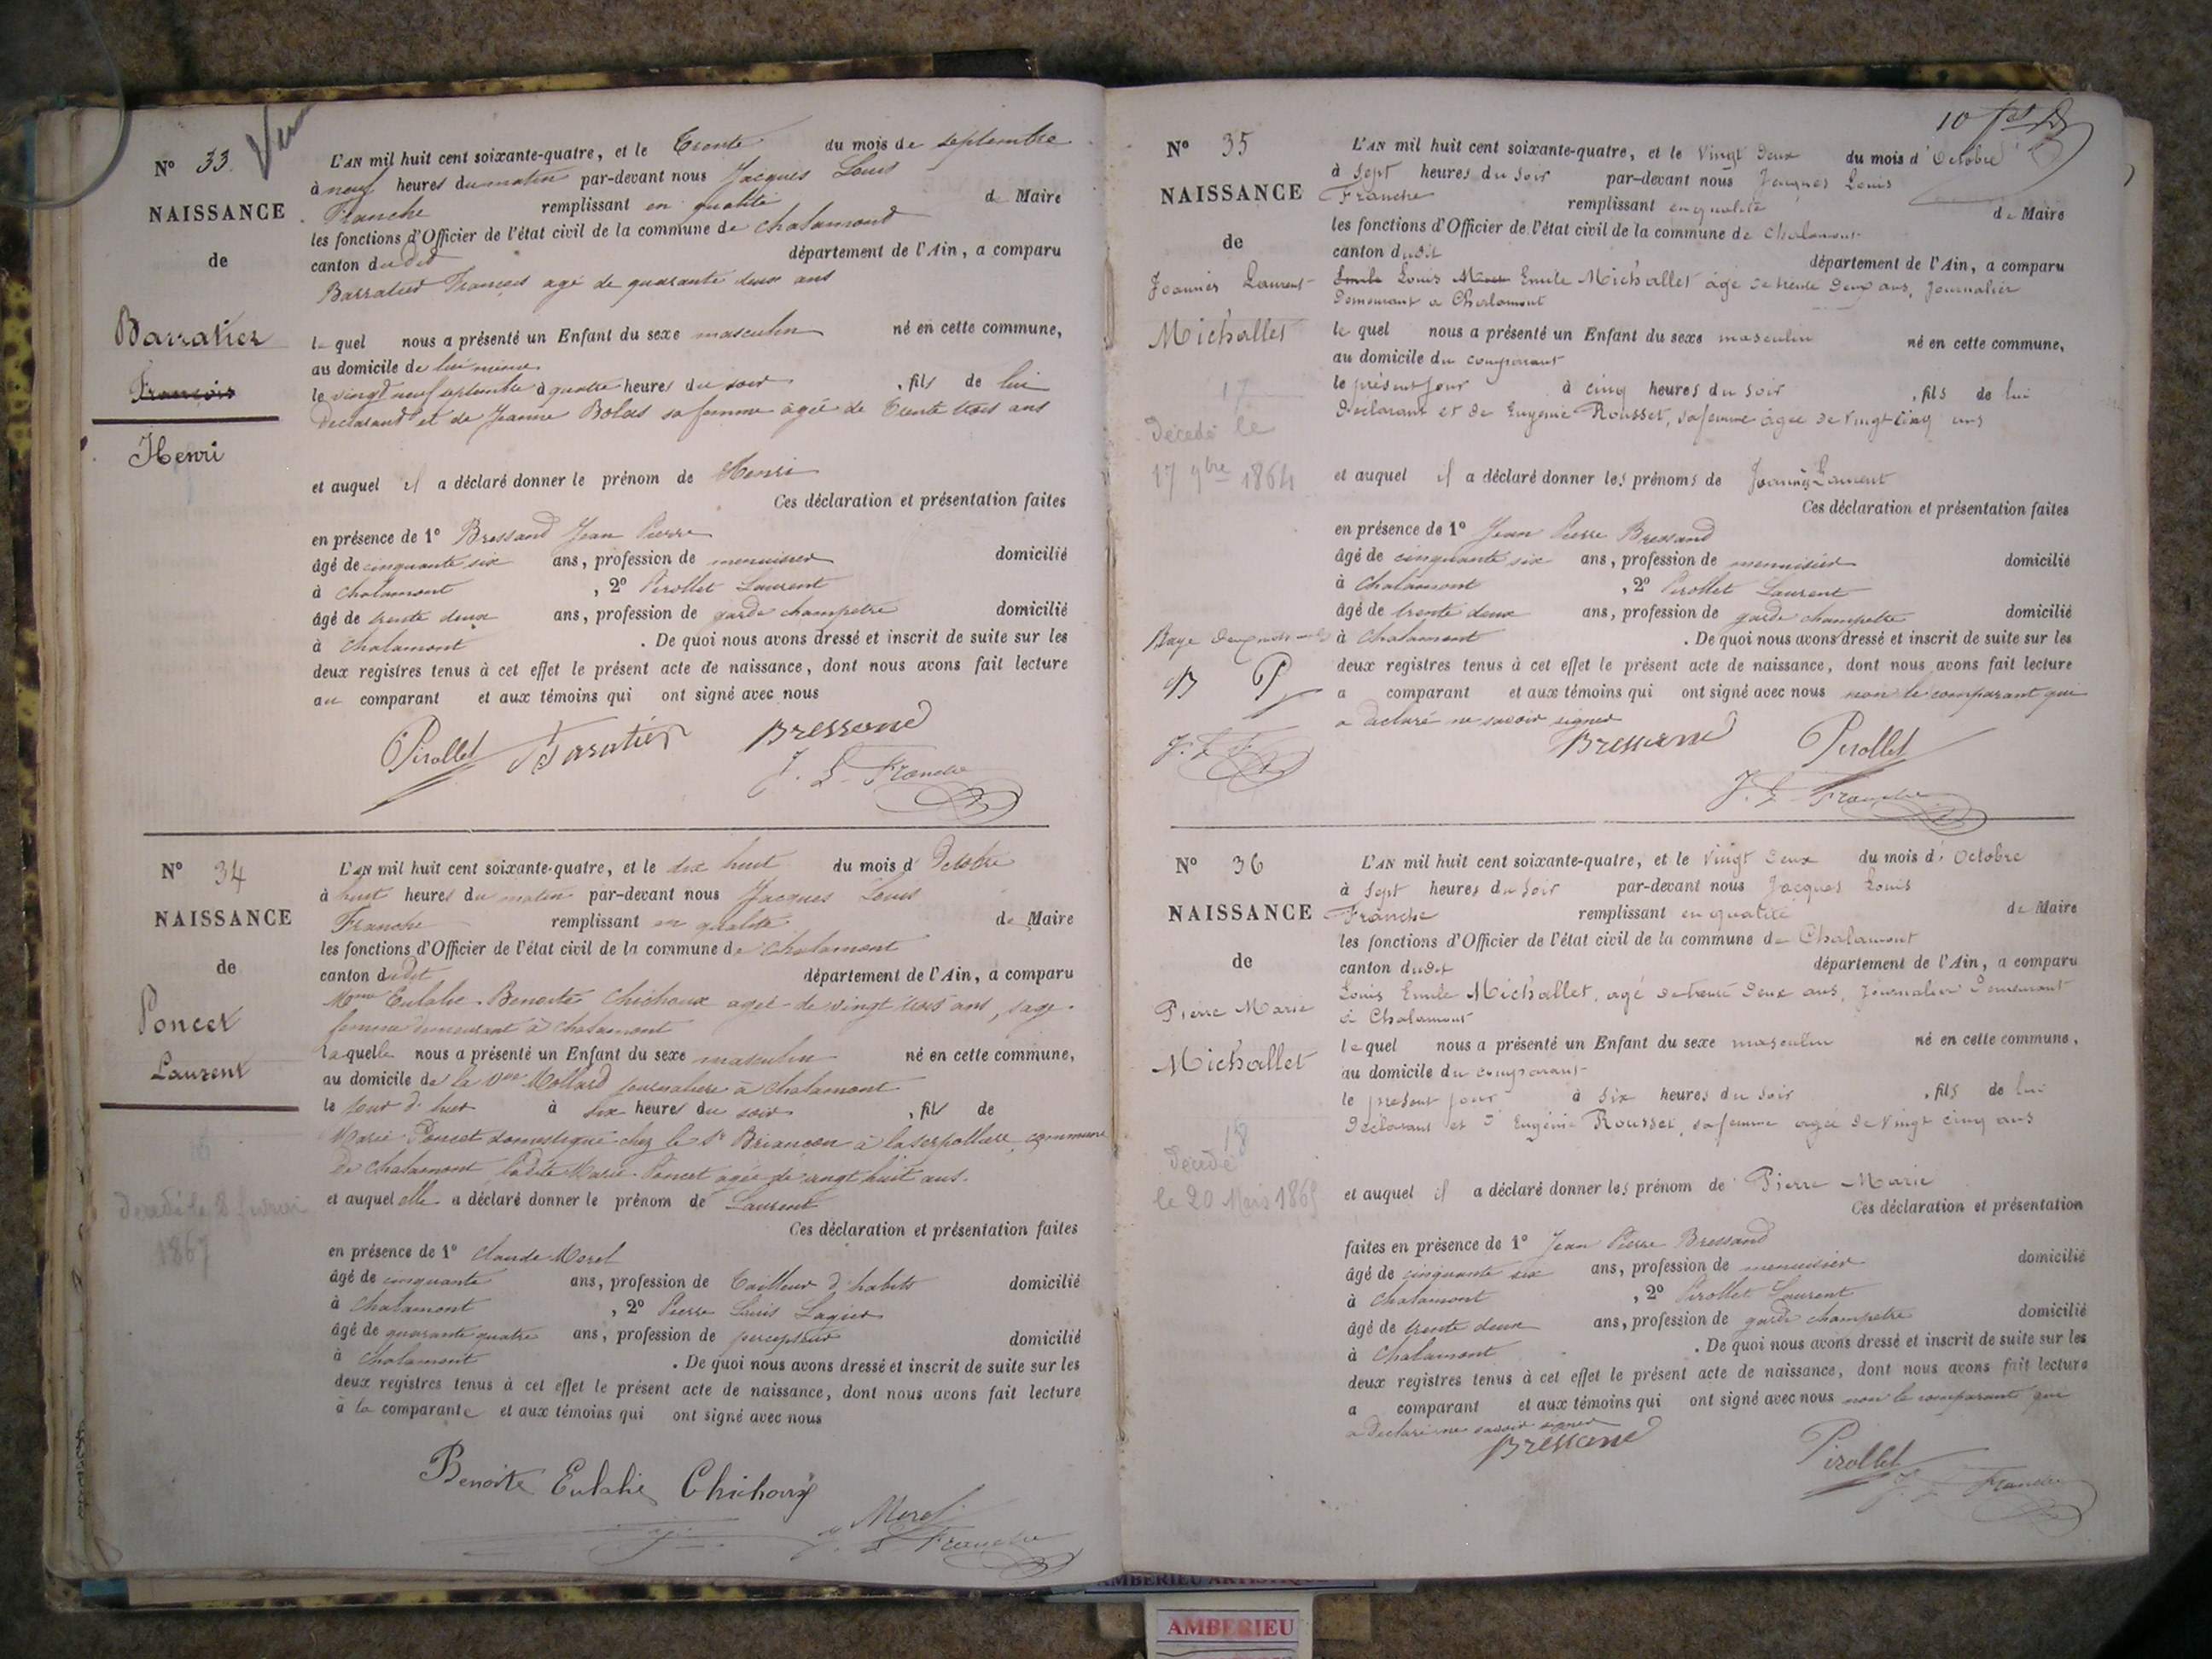 Vu
N° 33
NAISSANCE
de
Barratier
François
Henri
L'AN mil huit cent soixante-quatre, et le Trente du mois de septembre
à neuf heures du matin par-devant nous Jacques Louis
Franche remplissant en qualité de Maire
les fonctions d'Officier de l'état civil de la commune de chalamont
canton dudit département de l'Ain, a comparu
Barratier François agé de quarante deux ans
lequel nous a présenté un Enfant du sexe masculin né en cette commune,
au domicile de lui même
le vingt neuf septembre à quatre heures du soir, fils de lui
declarant et de Jeanne Bolas sa femme âgée de Trente trois ans
et auquel il a déclaré donner le prénom de Henri
Ces déclaration et présentation faites
en présence de 1° Bressand Jean Pierre
âgé de cinquante six ans, profession de menuisier domicilié
à chalamont, 2° Pirollet Laurent
âgé de trente deux ans, profession de garde champetre domicilié
à chalamont. De quoi nous avons dressé et inscrit de suite sur les
deux registres tenus à cet effet le présent acte de naissance, dont nous avons fait lecture
au comparant et aux témoins qui ont signé avec nous
Pirollet Baratier Bressand
J. L. Franche
N° 34
NAISSANCE
de
Poncet
Laurent
16
Décédé le 2
1867
L'AN mil huit cent soixante-quatre, et le dix huit du mois d'Octobre
à huit heures du matin par-devant nous Jacques Louis
Franche remplissant en qualité de Maire
les fonctions d'Officier de l'état civil de la commune de chalamont
canton dudit département de l'Ain, a comparu
Mme Eulalie Benoite Chichoux agée de vingt trois ans, sage
femme demeurant à chalamont
laquelle nous a présenté un Enfant du sexe masculin né en cette commune,
au domicile de la Vve Mollard journaliere à chalamont
le jour d'hier à six heures du soir, fils de
Marie Poncet domestique chez le Sr Briançon à laserpolliere, commune
de chalamont ladite Marie Poncet agée de vingt huit ans.
et auquel elle a déclaré donner le prénom de Laurent
Ces déclaration et présentation faites
en présence de 1° Claude Morel
âgé de cinquante ans, profession de Tailleur d'habits domicilié
à Chalamont, 2° Pierre Louis Lagier
âgé de quarante quatre ans, profession de percepteur domicilié
à chalamont. De quoi nous avons dressé et inscrit de suite sur les
deux registres tenus à cet effet le présent acte de naissance, dont nous avons fait lecture
à la comparante et aux témoins qui ont signé avec nous
Benoite Eulalie Chichoux
Morel
J. L. Franche
10
N° 35
NAISSANCE
de
Joannès Laurent
Michallet
17
Décédé le
17 9bre 1864
B P
J. L. F.
L'AN mil huit cent soixante-quatre, et le Vingt Deux du mois d'Octobre
à Sept heures du Soir par-devant nous Jacques Louis
Franche remplissant en qualité de Maire
les fonctions d'Officier de l'état civil de la commune de Chalamont
canton dudit département de l'Ain, a comparu
Louis Emile Michallet âgé de trente Deux ans, Journalier
Demeurant a Chalamont
lequel nous a présenté un Enfant du sexe masculin né en cette commune,
au domicile du comparant
le présent jour à cinq heures du Soir, fils de lui
Déclarant et de Eugénie Rousset, sa femme âgée de Vingt Cinq ans
et auquel il a déclaré donner les prénoms de Joannès Laurent
Ces déclaration et présentation faites
en présence de 1° Jean Pierre Bressand
âgé de cinquante six ans, profession de menuisier domicilié
à Chalamont, 2° Pirollet Laurent
âgé de trente deux ans, profession de garde champetre domicilié
à chalamont. De quoi nous avons dressé et inscrit de suite sur les
deux registres tenus à cet effet le présent acte de naissance, dont nous avons fait lecture
a comparant et aux témoins qui ont signé avec nous non le comparant qui
a declaré ne savoir signer
Bressand Pirollet
J. L. Franche
N° 36
NAISSANCE
de
Pierre Marie
Michallet
18
Décédé
le 20 Mars 1865
L'AN mil huit cent soixante-quatre, et le Vingt Deux du mois d'Octobre
à Sept heures du Soir par-devant nous Jacques Louis
Franche remplissant en qualité de Maire
les fonctions d'Officier de l'état civil de la commune de Chalamont
canton dudit département de l'Ain, a comparu
Louis Emile Michallet, agé de trente Deux ans, Journalier Demeurant
à Chalamont
lequel nous a présenté un Enfant du sexe masculin né en cette commune,
au domicile du comparant
le présent jour à Six heures du Soir, fils de lui
Déclarant et d'Eugénie Rousset, sa femme agée de Vingt cinq ans
et auquel il a déclaré donner les prénom de Pierre Marie
Ces déclaration et présentation
faites en présence de 1° Jean Pierre Bressand
âgé de cinquante six ans, profession de menuisier domicilié
à Chalamont, 2° Pirollet Laurent
âgé de trente deux ans, profession de garde champetre domicilié
à Chalamont. De quoi nous avons dressé et inscrit de suite sur les
deux registres tenus à cet effet le présent acte de naissance, dont nous avons fait lecture
a comparant et aux témoins qui ont signé avec nous non le comparant qui
a declaré ne savoir signer
Bressand Pirollet
J. L. Franche
AMBERIEU ARTISTIQUE
AMBERIEU